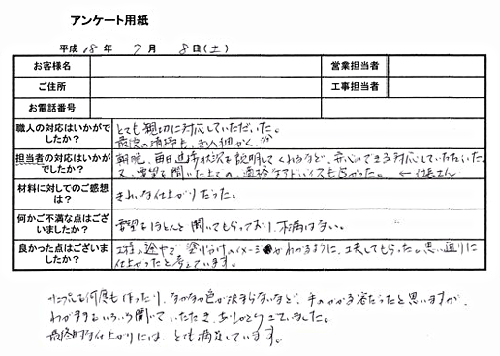 アンケート用紙
平成 18 年 7 月 8 日(土)
お客様名 営業担当者
ご住所 工事担当者
お電話番号
職人の対応はいかがでしたか?
とても親切に対応していただいた。
最後の清掃も、きめ細かく
担当者の対応はいかがでしたか?
朝晩、毎日進捗状況を説明してくれるなど、安心できる対応していただいた。
又、要望を聞いた上での、適切なアドバイスも良かった。
材料に対してのご感想は?
きれいな仕上がりだった。
何かご不満な点はございましたか?
要望をほとんど聞いてもらっており、不満はない。
良かった点はございましたか?
工程の途中で、塗り分けのイメージがわかるように、工夫してもらった。思い通りに
仕上がったと考えています。
サンプルを何度も作ったり、なかなか色が決まらないなど、手のかかる客だったと思いますが、
わがままをいろいろ聞いていただき、ありがとうございました。
最終的な仕上がりには、とても満足しています。